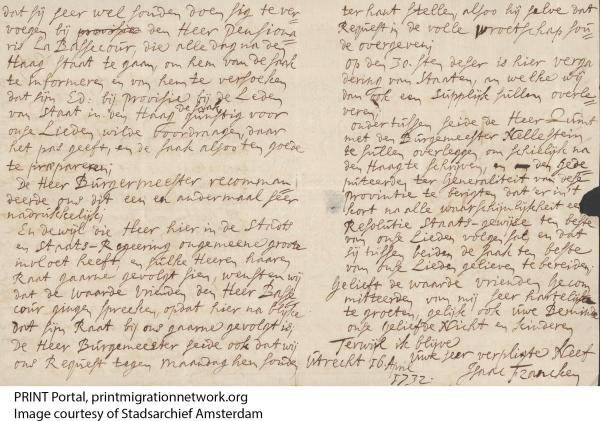 dat sij seer wel souden doen sig te ver
voegen bij den Heer Pensiona
ris La Bassecour, die alle dag na de
Haag staat te gaan, om hem van de saak
te informeren en van hem te versoeken
dat sijn Ed: bij provisie bij de Leden
van Staat in den Haag de saak gunstig voor
onse Lieden wilde voordragen, daar
het pas geeft, en de saak alsoo ten goede
te præpareren;
De Heer Burgermeester recomman
deerde ons dit een en andermaal seer
nadrukkelijk;
En dewijl die Heer hier in de Stadts
en Staats-Regeering ongemeene groote
invloet heeft, en sulke Heeren haaren
Raat gaarne gevolgt sien, wensten wij
dat de waarde vrienden den Heer Basse
cour gingen spreken, opdat hier na blijke
dat sijn Raat bij ons gaarne gevolgt is,
de Heer Burgemeester seide ook dat wij
ons Request tegen maandag hem souden
ter hant stellen, alsoo hij selve dat
Request in de volle vroetschap sou
de overgeven;
op den 30.sten deser is hier verga
dering van Staaten, an welke wij
dan ook een Supplijk sullen overle
veren;
ondertussen seide de Heer
met den Burgemeester Nellestein
te sullen overleggen, om schielijk na
den Haag te schrijven, en den Gede
puteerden ter Generaliteit van dese
Provintie te berigten, dat er in't
kort na alle waarschijnlijkheit een
Resolutie Staats-gewijse ten beste
van onse Lieden volgen sal, en dat
sij tussen beiden de saak ten beste
van onse Lieden gelieven te bereiden.
Gelieft de waarde vrienden Gecom
mitteerden van mij seer hartelijk
te groeten, gelijk ook uwe Beminde
onse geliefde Nicht en kinderen
Terwijl ik blijve
Uwe seer verpligte Neef
Utrecht 16 April
1732.
Isaac Francken
PRINT Portal, printmigrationnetwork.org
Image courtesy of Stadsarchief Amsterdam